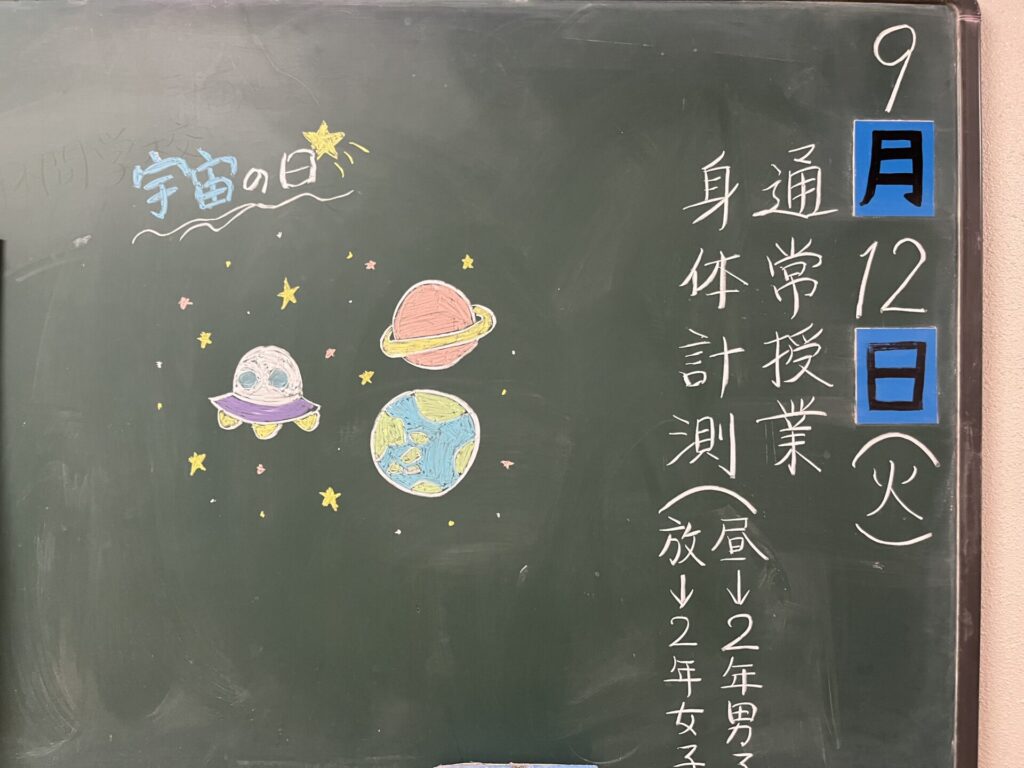 9月12日(火)
通常授業
身体計測(昼→2年男子
放→2年女子
宇宙の日